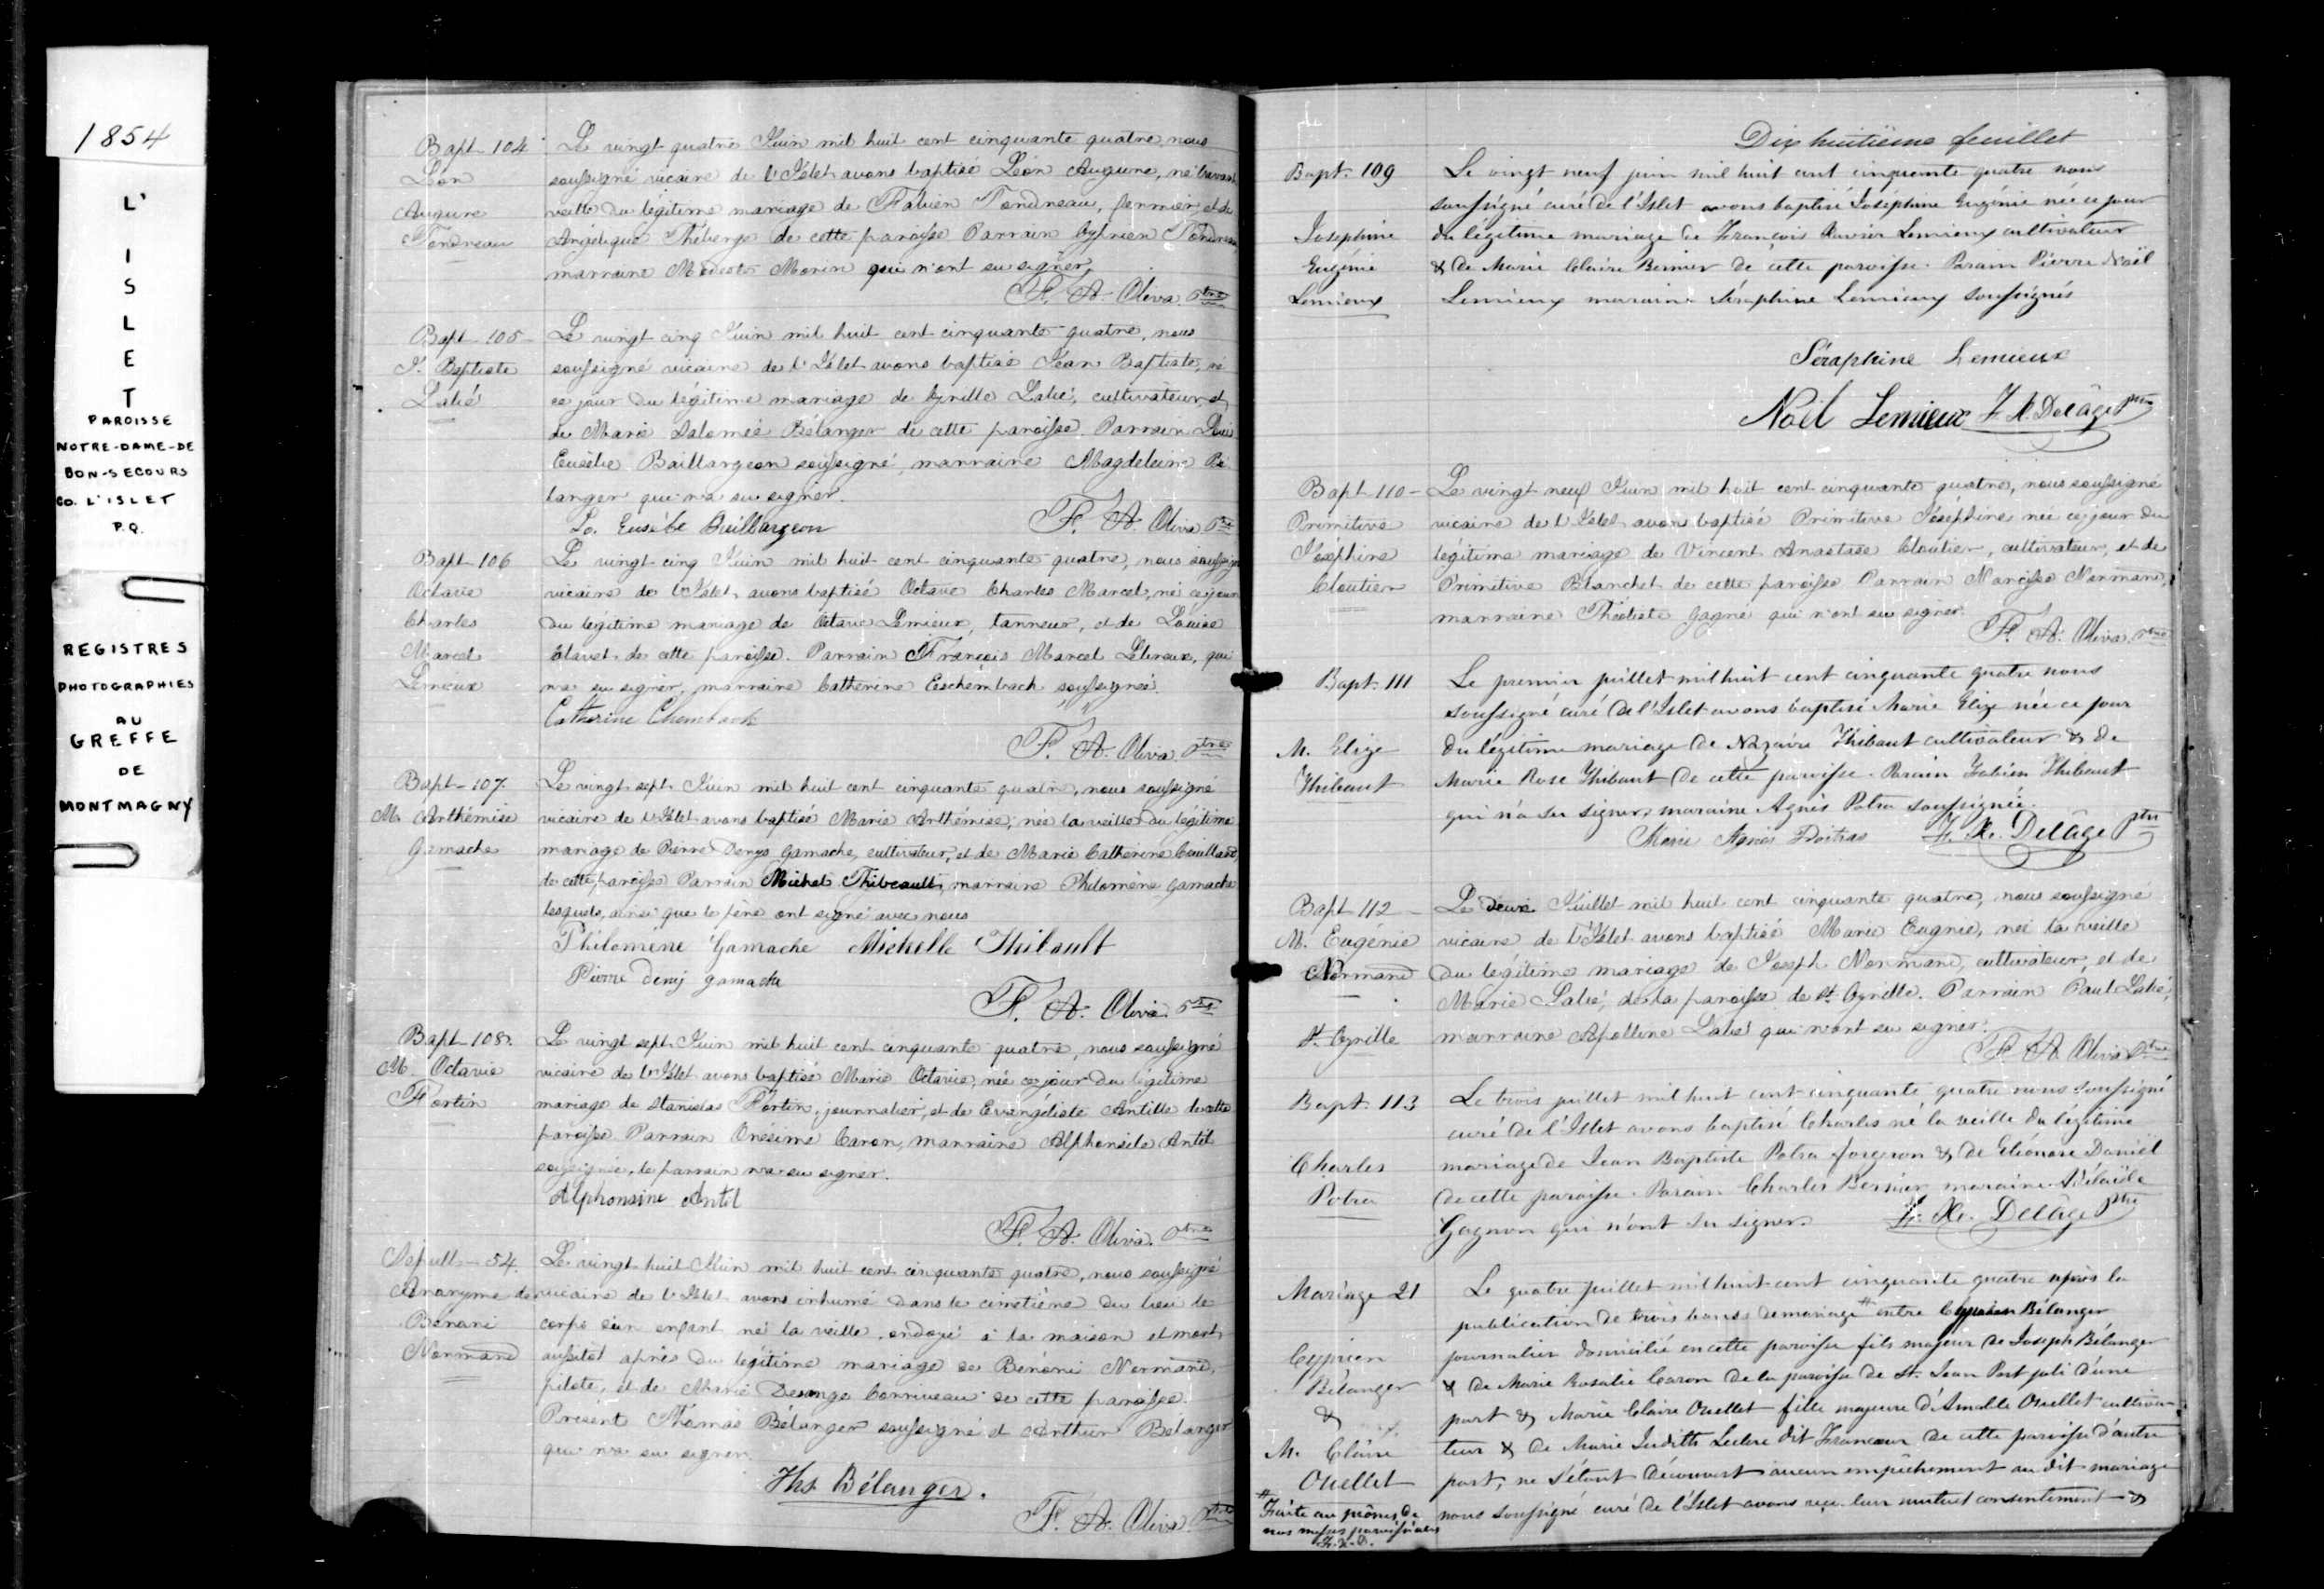 1854
L'
I
S
L
E
T
PAROISSE
NOTRE-DAME-DE
BON-SECOURS
CO. L'ISLET
P.Q.
REGISTRES
PHOTOGRAPHIES
AU
GREFFE
DE
MONTMAGNY
Bapt 104
Léon
Augure
Tondreau
Le vingt quatre Juin mil huit cent cinquante quatre, nous
soussigné vicaire de l'Islet avons baptisé Léon Augure, né
veille du légitime mariage de Fabien Tondreau, fermier, et de
Angélique Théberge de cette paroisse Parrain Cyprien Tondreau
marraine Modeste Morin qui n'ont su signer,
F. A. Oliva Ptre
Bapt 105
J. Baptiste
Labié
Le vingt cinq Juin mil huit cent cinquante quatre, nous
soussigné vicaire de l'Islet avons baptisé Jean Baptiste, né
ce jour du légitime mariage de Cyrille Labié, cultivateur, et
de Marie Salomée Bélanger de cette paroisse. Parrain Louis
Eusèbe Baillargeon soussigné, marraine Magdeleine Bé
langer qui n'a su signer.
Ls. Eusèbe Baillargeon F. A. Oliva Ptre
Bapt 106
Octave
Charles
Marcel
Lemieux
Le vingt cinq Juin mil huit cent cinquante quatre, nous soussigné
vicaire de l'Islet avons baptisé Octave Charles Marcel, né ce jour
du légitime mariage de Octave Lemieux, tanneur, et de Louise
de cette paroisse. Parrain François Marcel qui
n'a su signer, marraine Catherine Eschembach soussignée.
Catherine Chembach
F. A. Oliva Ptre
Bapt 107.
M. Arthémise
Gamache
Le vingt sept Juin mil huit cent cinquante quatre, nous soussigné
vicaire de l'Islet avons baptisé Marie Arthémise, née la veille du légitime
mariage de Pierre Denys Gamache, cultivateur, et de Marie Catherine Couillard,
de cette paroisse Parrain Michel Thibeault, marraine Philomène Gamache
lesquels, ainsi que le père ont signé avec nous
Philomène Gamache Michelle Thibault
Pierre deny gamache
F. A. Oliva. Ptre
Bapt 108.
M. Octavie
Fortin
Le vingt sept Juin mil huit cent cinquante quatre, nous soussigné
vicaire de l'Islet avons baptisé Marie Octavie, née ce jour du légitime
mariage de Stanislas Fortin, journalier, et de Evangéliste Antille de cette
paroisse Parrain Onésime Caron, marraine Alphonsile Antil
soussignée, le parrain n'a su signer.
Alphonsine Antil
F. A. Oliva. Ptre
Sépult 54.
Anonyme de
Bénoni
Normand
Le vingt huit Juin mil huit cent cinquante quatre, nous soussigné
vicaire de l'Islet avons inhumé dans le cimetière du lieu le
corps d'un enfant né la veille, ondoyé à la maison et mort
aussitôt après du légitime mariage de Bénoni Normand,
pilote, et de Marie Desange Corriveau de cette paroisse.
Présent Thomas Bélanger soussigné et Arthur Bélanger
qui n'a su signer.
Ths Bélanger.
F. A. Oliva Ptre
Dix huitième feuillet
Bapt. 109
Joséphine
Eugénie
Lemieux
Le vingt neuf juin mil huit cent cinquante quatre nous
soussigné curé de l'Islet avons baptisé Joséphine Eugénie née ce jour
du légitime mariage de François Xavier Lemieux cultivateur
& de Marie Claire Bernier de cette paroisse. Parain Pierre Noël
Lemieux maraine Séraphine Lemieux soussignés
Séraphine Lemieux
Noël Lemieux F. X. Delâge Ptre
Bapt 110
Primitive
Joséphine
Cloutier
Le vingt neuf Juin mil huit cent cinquante quatre, nous soussigné
vicaire de l'Islet avons baptisé Primitive Joséphine née ce jour du
légitime mariage de Vincent Anastase Cloutier, cultivateur, et de
Primitive Blanchet de cette paroisse Parrain Narcisse Normand,
marraine Théotiste Gagné qui n'ont su signer.
F. A. Oliva Ptre
Bapt. 111
M. Elize
Thibaut
Le premier juillet mil huit cent cinquante quatre nous
soussigné curé de l'Islet avons baptisé Marie Elize née ce jour
du légitime mariage de Nazaire Thibaut cultivateur & de
Marie Rose Thibaut de cette paroisse. Parain Fabien Thibaut
qui n'a su signer, maraine Agnès Potra soussignée.
Marie Agnès Poitras F. X. Delâge Ptre
Bapt 112
M. Eugénie
Normand
St. Cyrille
Le deux Juillet mil huit cent cinquante quatre, nous soussigné
vicaire de l'Islet avons baptisé Marie Eugnie, née la veille
du légitime mariage de Joseph Normand, cultivateur, et de
Marie Labié, de la paroisse de St. Cyrille. Parrain Paul Labié,
marraine Apolline Labié qui n'ont su signer.
F. A. Oliva Ptre
Bapt. 113
Charles
Potra
Le trois juillet mil huit cent cinquante quatre nous soussigné
curé de l'Islet avons baptisé Charles né la veille du légitime
mariage de Jean Baptiste Potra forgeron & de Eléonore Daniël
de cette paroisse. Parain Charles Bernier maraine Adélaïde
Gagnon qui n'ont su signer. F. X. Delâge Ptre
Mariage 21
Cyprien
Bélanger
&
M. Claire
Ouellet
Le quatre juillet mil huit cent cinquante quatre après la
publication de trois bans de mariage # entre Cyprien Bélanger
journalier domicilié en cette paroisse fils majeur de Joseph Bélanger
& de Marie Rosalie Caron de la paroisse de St. Jean Port joli d'une
part & Marie Claire Ouellet fille majeure d'Amable Ouellet cultiva-
teur & de Marie Judith Leclerc dit Francoeur de cette paroisse d'autre
part, ne s'étant découvert aucun empêchement au dit mariage
nous soussigné curé de l'Islet avons reçu leur mutuel consentement &
# Faite au prônes de
nos messes paroissiales
F. X. D.